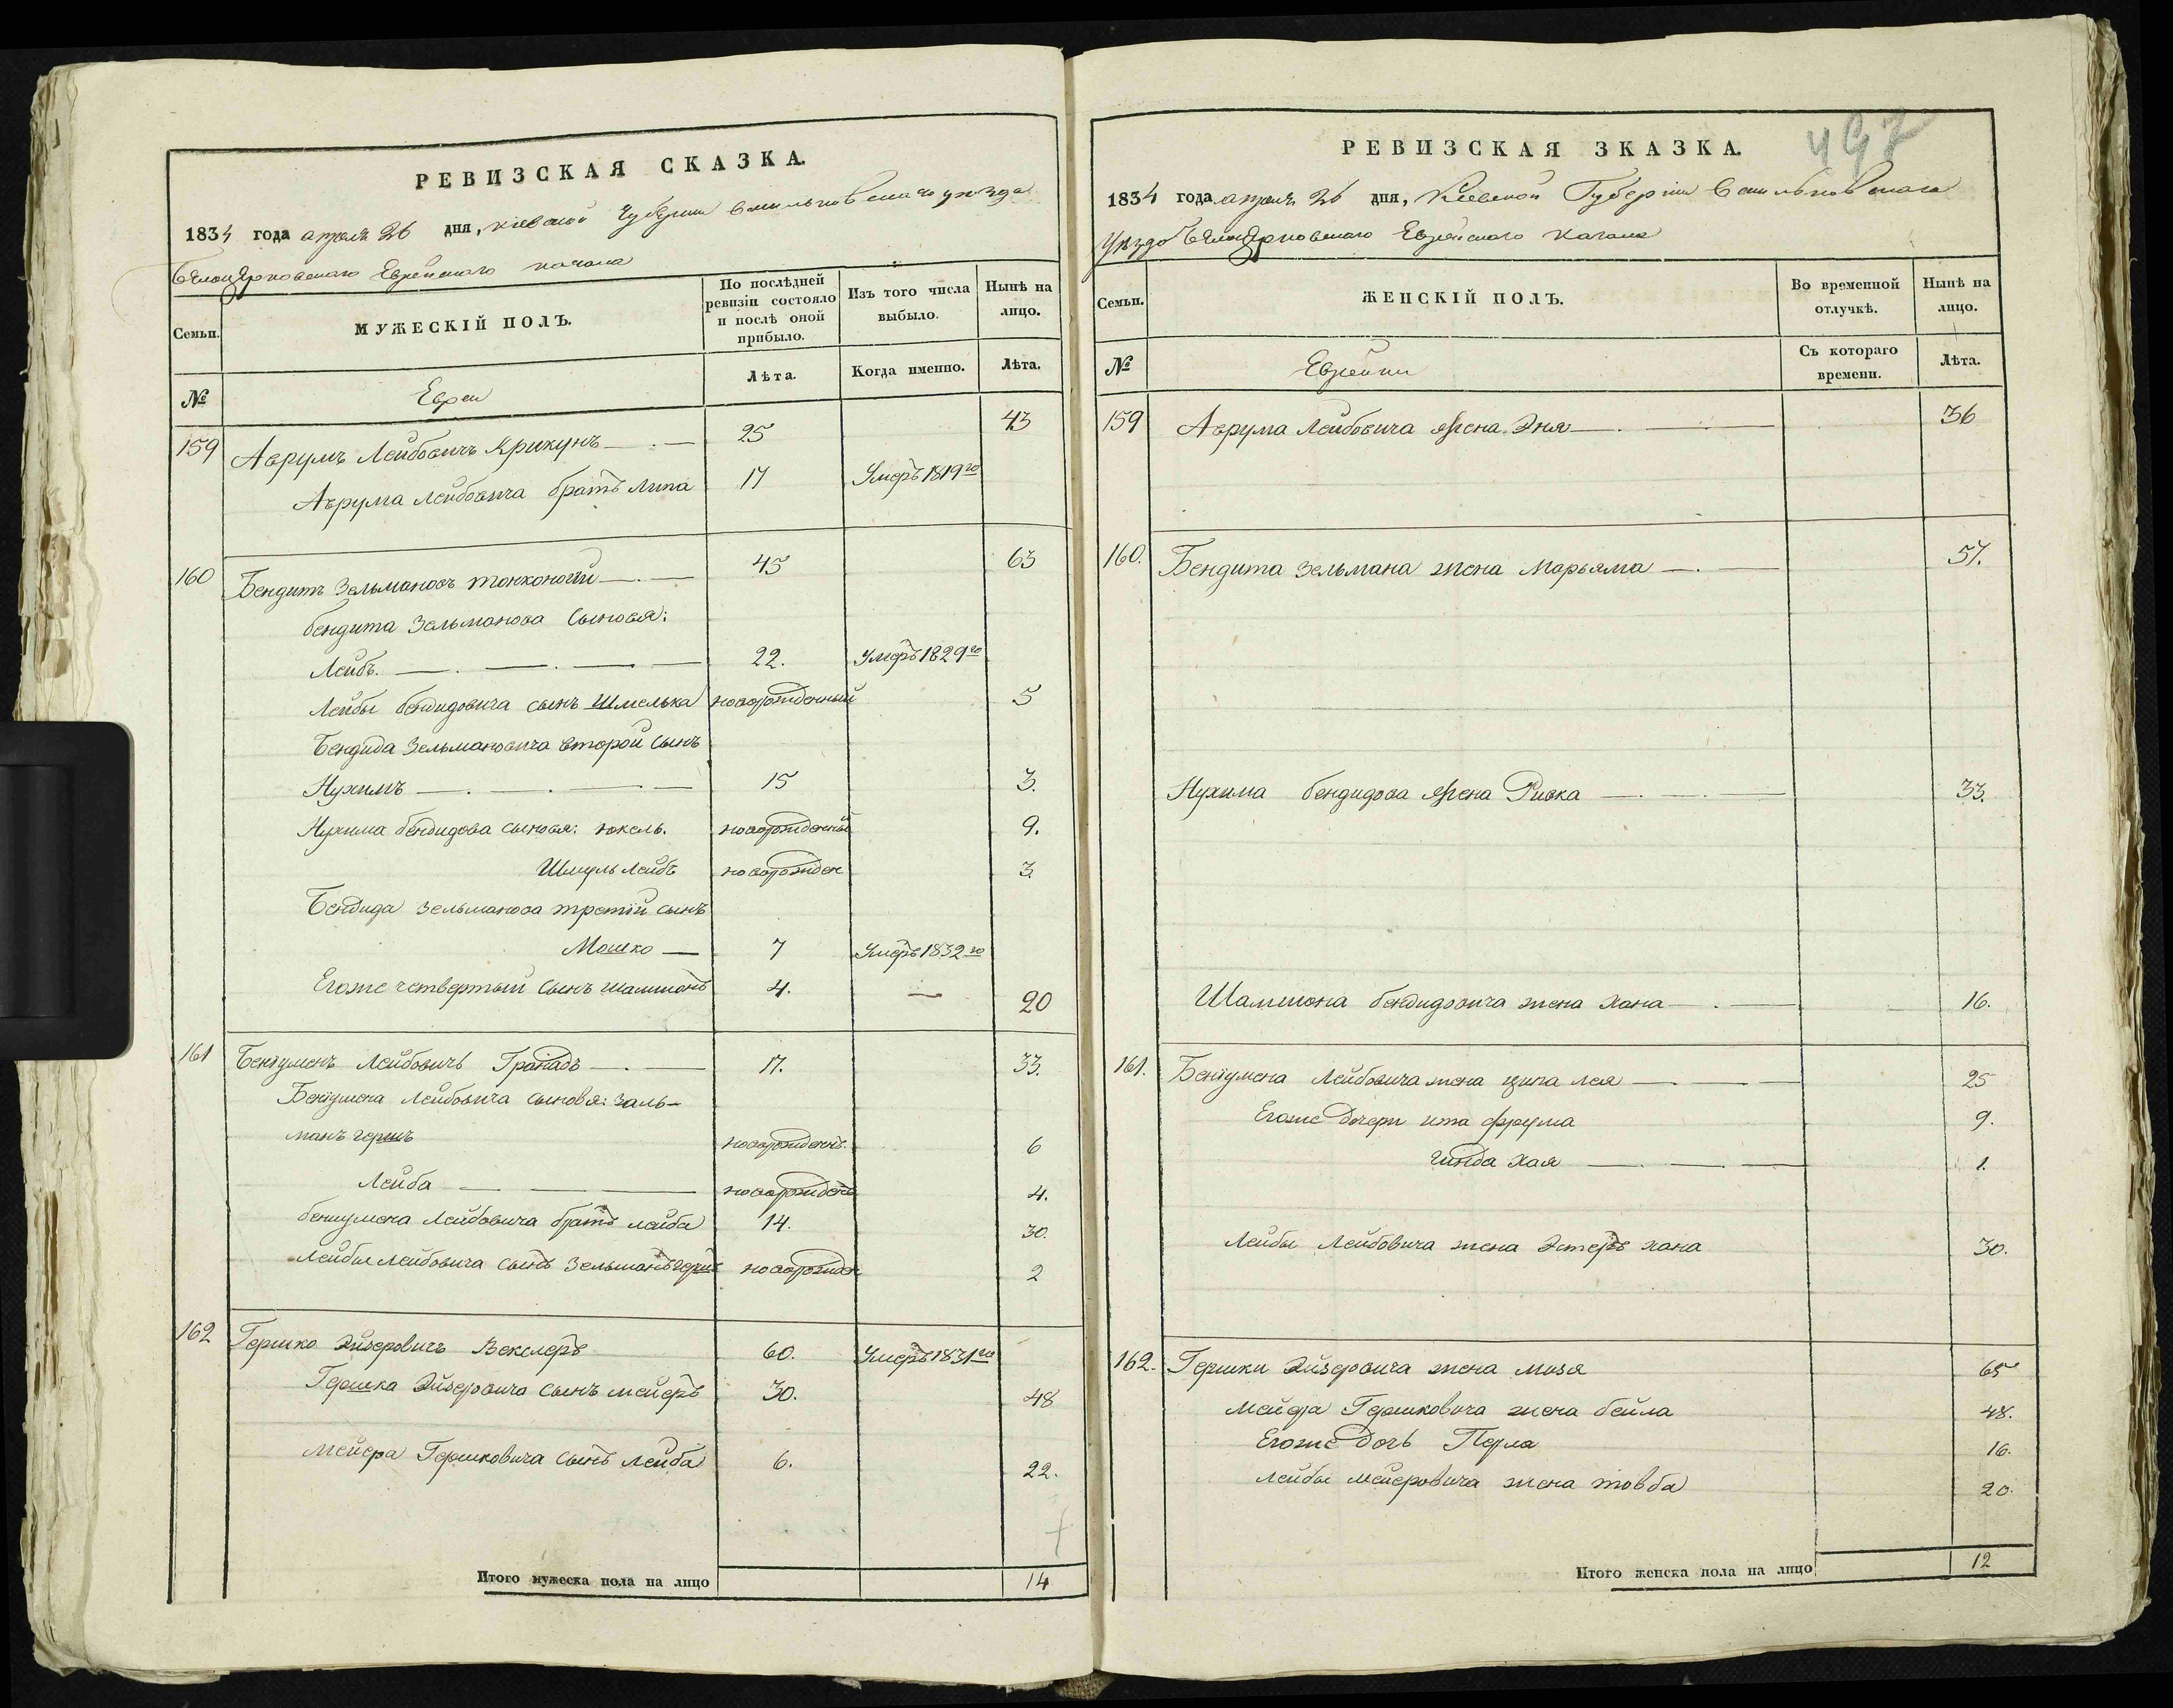 РЕВИЗСКАЯ СКАЗКА.
1834 года апреля 26 дня, Киевской Губернии Васильковскаго уезда
Белоцерковскаго Еврейскаго кагала
Семьи. МУЖЕСКІЙ ПОЛЪ. По послѣдней ревизіи состояло и послѣ оной прибыло. Изъ того числа выбыло. Нынѣ на лицо.
№ Евреи Лѣта. Когда именно. Лѣта.
159 Аврумъ Лейбовичъ Крикунъ 25 43
Аврума Лейбовича братъ Липа 17 Умеръ 1819го
160 Бендитъ Зельмановъ Тонконогій 45 63
бендита Зельманова Сыновья:
Лейбъ. 22. Умеръ 1829го
Лейбы бендидовича сынъ Шмелька новорожденный 5
Бендида Зельмановича второй сынъ
Нухимъ 15 3.
Нухима бендидова сыновя: юкель. новорожденный 9.
Шмуль Лейбъ новорожден 3
Бендида Зельманова третій сынъ
Мошко 7 Умеръ 1832го
Егоже четвертый Сынъ шамшонъ 4. 20
161 Бенiуменъ Лейбовичъ Гранадъ 17. 33.
Бенiумена Лейбовича сыновя: заль-
манъ гершъ новорожденъ. 6
Лейба новорожденъ 4.
бениумена Лейбовича братъ лейба 14. 30.
Лейбы лейбовича сынъ Зельманъ гершъ новорожден 2
162 Гершко Эйзеровичъ Векслеръ 60. Умеръ 1831го
Гершка Эйзеровича сынъ мейеръ 30. 48
Мейера Гершковича сынъ лейба 6. 22.
Итого мужеска пола на лицо 14
497
РЕВИЗСКАЯ ЗКАЗКА.
1834 года апреля 26 дня, Киевской Губерніи Васильковскаго
Уезда Белоцерковскаго Еврейскаго Кагала
Семьи. ЖЕНСКІЙ ПОЛЪ. Во временной отлучкѣ. Нынѣ на лицо.
№ Еврейки Съ котораго времени. Лѣта.
159 Аврума Лейбовича жена Эня 36
160. Бендита Зельмана жена Марьяма 57.
Нухима бендидова жена Ривка 33.
Шамшона бендидовича жена хана 16.
161. Бенiумена Лейбовича жена ципа лея 25
Егоже дочери ита фрума 9.
Гинда хая 1.
Лейбы Лейбовича жена Эстеръ хана 30.
162. Гершки Эйзеровича жена мизя 65
Мейера Гершковича жена бейла 48.
Егоже дочь Перла 16.
Лейбы мейеровича жена товба 20.
Итого женска пола на лицо 12